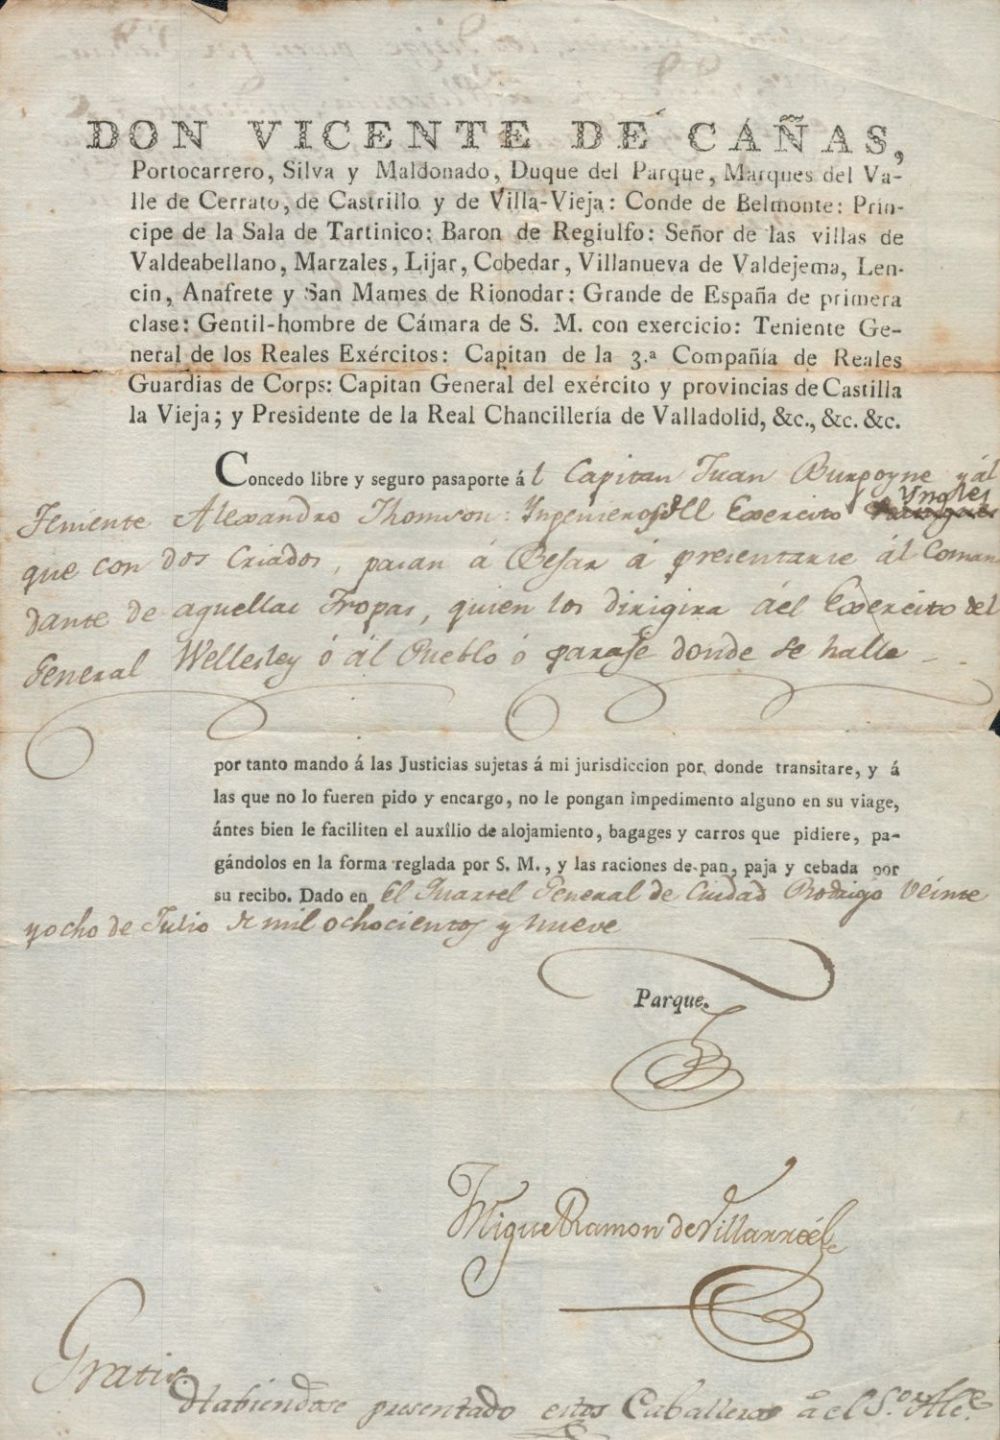 DON VICENTE DE CAÑAS,
Portocarrero, Silva y Maldonado, Duque del Parque, Marques del Va-
lle de Cerrato, de Castrillo y de Villa-Vieja: Conde de Belmonte: Prin-
cipe de la Sala de Tartinico: Baron de Regiulfo: Señor de las villas de
Valdeabellano, Marzales, Lijar, Cobedar, Villanueva de Valdejema, Len-
cin, Anafrete y San Mames de Rionodar: Grande de España de primera
clase: Gentil-hombre de Cámara de S. M. con exercicio: Teniente Ge-
neral de los Reales Exércitos: Capitan de la 3.ª Compañía de Reales
Guardias de Corps: Capitan General del exército y provincias de Castilla
la Vieja; y Presidente de la Real Chancillería de Valladolid, &c., &c. &c.
Concedo libre y seguro pasaporte á l Capitan Juan Burgoyne y ál
Yngles
Teniente Alexandro Thomson: Yngenieros del Exercito
que con dos Criados, pasan á Besar á presentarse ál Coman
dante de aquellas Tropas, quien los dirigira áel Exercito del
General Wellesley ó ál Pueblo ó parage donde se halle
por tanto mando á las Justicias sujetas á mi jurisdiccion por donde transitare, y á
las que no lo fueren pido y encargo, no le pongan impedimento alguno en su viage,
ántes bien le faciliten el auxîlio de alojamiento, bagages y carros que pidiere, pa-
gándolos en la forma reglada por S. M., y las raciones de pan, paja y cebada por
su recibo. Dado en El Quartel General de Ciudad Rodrigo Veinte
y ocho de Julio de mil ochocientos y nueve
Parque.
Miguel Ramon de Villarroél
Gratis.
Habiendose presentado estos Caballeros á el S.or Alc.e